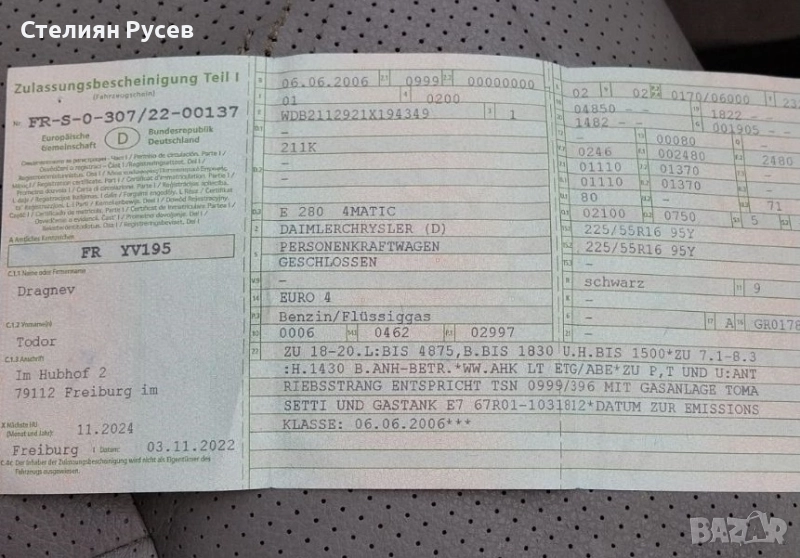 Стелиян Русев
Zulassungsbescheinigung Teil I
(Fahrzeugschein)
Nr. FR-S-0-307/22-00137
Europäische Gemeinschaft
D
Bundesrepublik Deutschland
A Amtliches Kennzeichen
FR YV195
C.1.1 Name oder Firmenname
Dragnev
C.1.2 Vorname(n)
Todor
C.1.3 Anschrift
Im Hubhof 2
79112 Freiburg im
X Nächste HU
(Monat und Jahr)
11.2024
Freiburg
Datum:
03.11.2022
C.4c Der Inhaber der Zulassungsbescheinigung wird nicht als Eigentümer des
Fahrzeugs ausgewiesen.
06.06.2006 2.1 0999 2.2 00000000
01 0200
WDB2112921X194349 3 1
–
211K
–
–
E 280 4MATIC
DAIMLERCHRYSLER (D)
PERSONENKRAFTWAGEN
GESCHLOSSEN
–
EURO 4
Benzin/Flüssiggas
0006 0462 P.1 02997
22 ZU 18-20.L:BIS 4875,B.BIS 1830 U.H.BIS 1500*ZU 7.1-8.3
:H.1430 B.ANH-BETR.*WW.AHK LT ETG/ABE*ZU P,T UND U:ANT
RIEBSSTRANG ENTSPRICHT TSN 0999/396 MIT GASANLAGE TOMA
SETTI UND GASTANK E7 67R01-1031812*DATUM ZUR EMISSIONS
KLASSE: 06.06.2006***
02 02 0170/06000
04850 – – 1822 – –
1482 – – 001905 – –
– 00080 –
0246 002480 2480
01110 01370 –
01110 01370 –
80 – 71
02100 0750 5
225/55R16 95Y
225/55R16 95Y
–
–
schwarz 9
–
–
– A
–
BAZAR